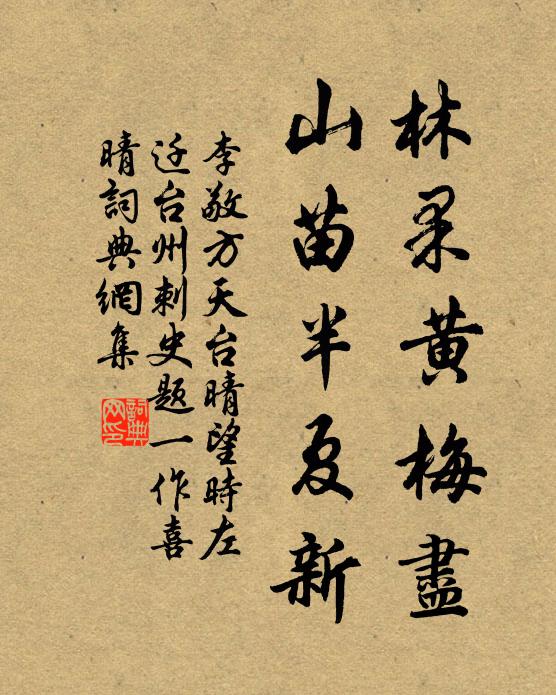 林果黄梅盡
山苗半夏新
李敬方天台晴望時左
迁台州刺史题一作喜
晴詞典網集
詞典网印